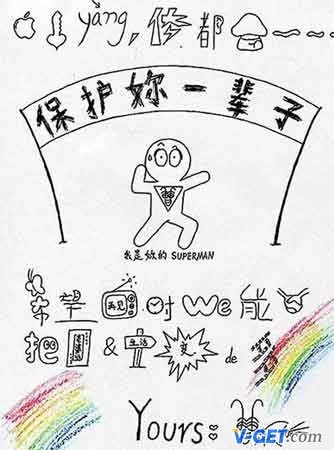 yáng, 修 都
保护妳一辈子
我是妳的 SUPERMAN
希望 再见 时 We 能
把 & 生活 变 de
Yours:
V-GET.com